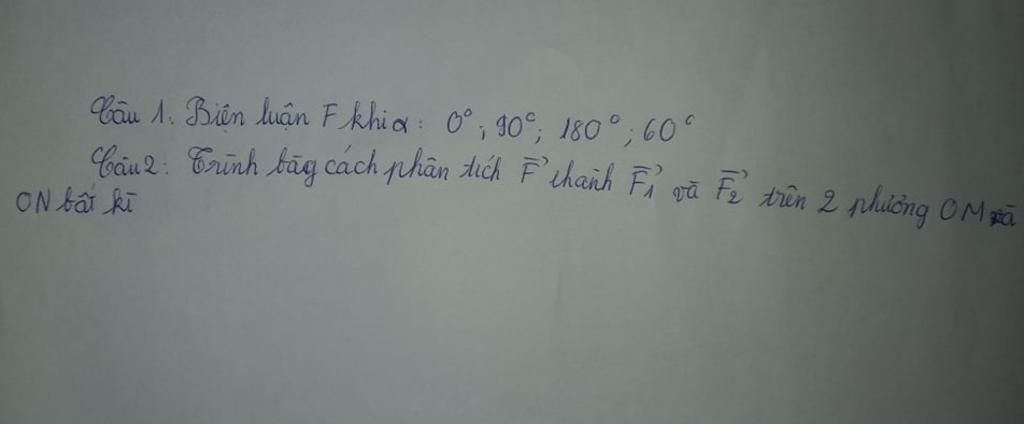 Câu 1. Biện luận F khi α: 0°; 90°; 180°; 60°
Câu 2: Trình bày cách phân tích F⃗ thành F⃗₁ và F⃗₂ trên 2 phương OM và
ON bất kì